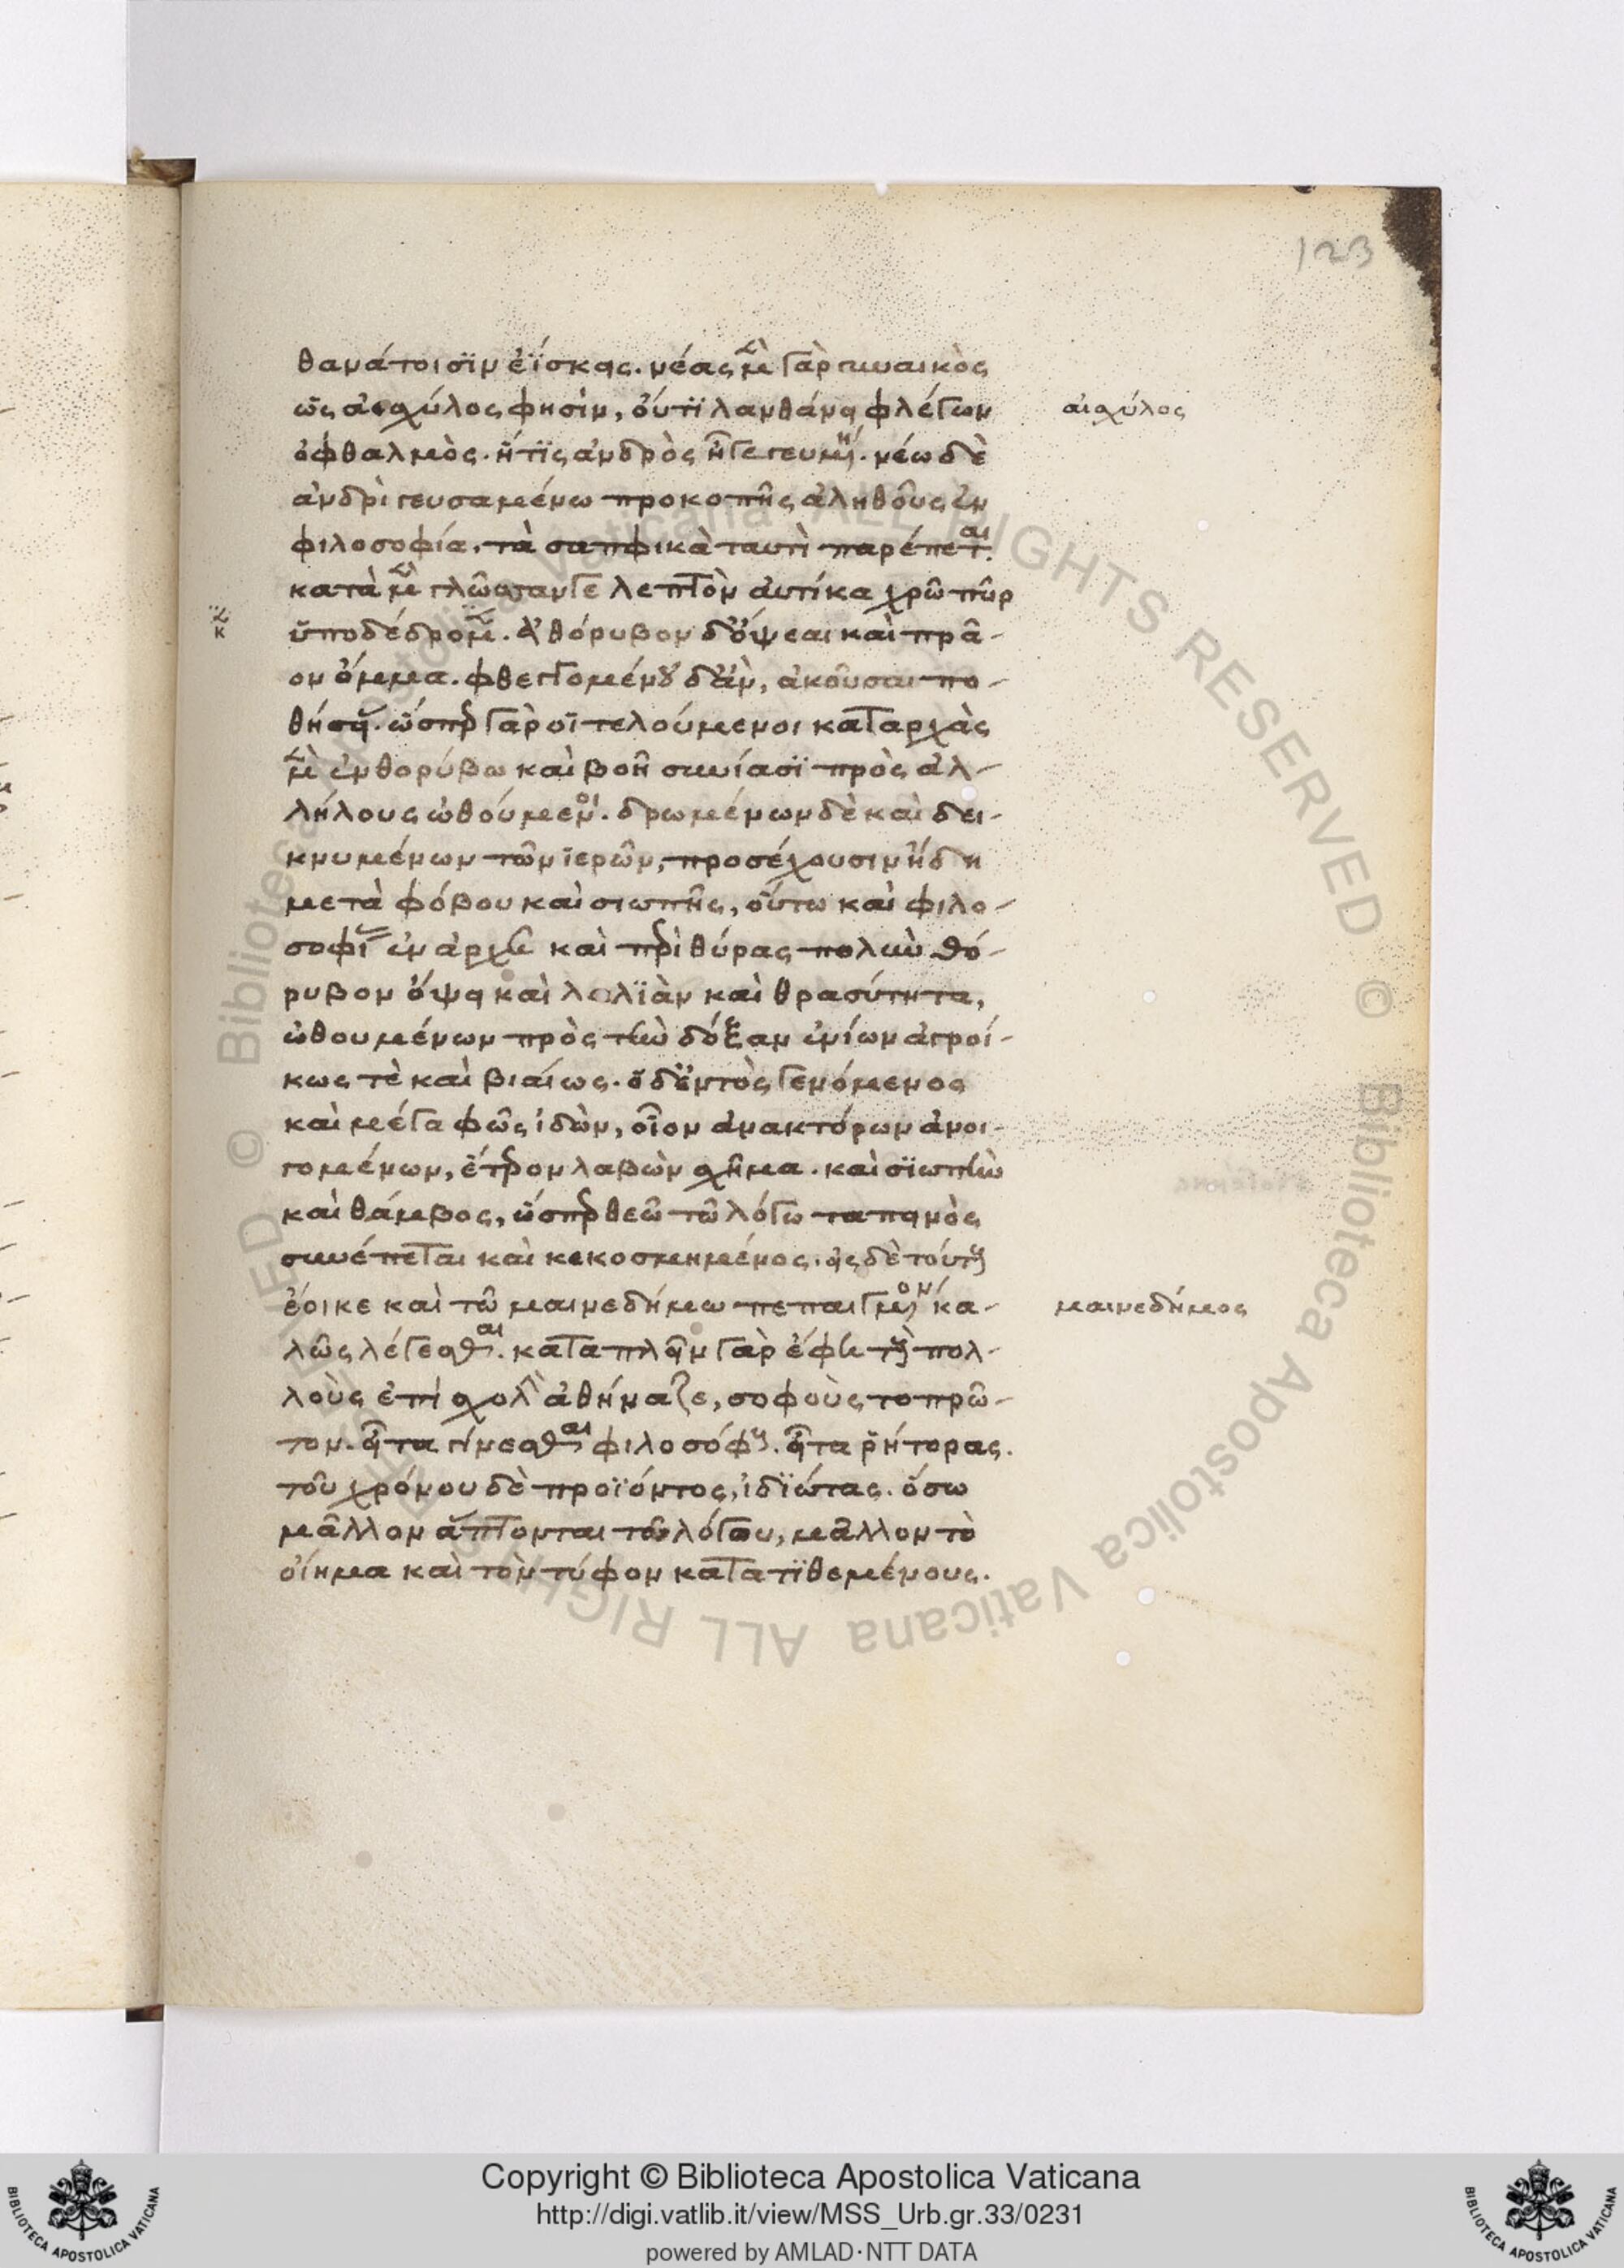 123
θανάτοισϊν ἐΐσκεις. νέας μὲν γὰρ γυναικὸς
ὥς αἰσχύλος φησὶν, οὔτϊ λανθάνει φλέγων αἰσχύλος
ὀφθαλμὸς. ἥτϊς ἀνδρὸς ἦ γεγευμένη. νέω δὲ
ἀνδρὶ γευσαμένω προκοπῆς ἀληθοῦς ἐν
φιλοσοφία, τὰ σαπφικὰ ταυτὶ παρέπεται.
κατὰ μὲν γλῶσσαν γε λεπτὸν ἀυτίκα χρῶ πῦρ
ὕποδέδρομεν. ἀθόρυβον δ᾽ ὄψεαι καὶ πρᾶ-
ον ὄμμα. φθεγγομένου δ᾽ ἂν, ἀκοῦσαι πο-
θήσεις. ὥσπερ γὰρ οἵ τελούμενοι καταρχὰς
μὲν ἐν θορύβω καὶ βοῆ συνίασϊ πρὸς ἀλ-
λήλους ὠθούμενοι. δρωμένων δὲ καὶ δει-
κνυμένων τῶν ϊερῶν, προσέχουσιν ἤδη
μετὰ φόβου καὶ σιωπῆς, οὕτω καὶ φιλο-
σοφίας ἐν ἀρχῆ καὶ περὶ θύρας πολὺν θό-
ρυβον ὄψει καὶ λαλϊὰν καὶ θρασύτητα,
ὠθουμένων πρὸς τὴν δόξαν ἐνίων ἀγροί-
κως τὲ καὶ βιαίως. ὅ δ᾽ ἐντὸς γενόμενος
καὶ μέγα φῶς ἰδὼν, οἷον ἀνακτόρων ἀνοι-
γομένων, ἕτερον λαβὼν σχῆμα. καὶ σϊωπὴν
καὶ θάμβος, ὥσπερ θεῶ τῶ λόγω ταπεινὸς
συνέπεται καὶ κεκοσμημένος. εἰς δὲ τούτους
ἔοικε καὶ τῶ μαινεδήμω πεπαιγμένον κα- μαινεδήμος
λῶς λέγεσθαι. καταπλεῖν γὰρ ἔφη τοὺς πολ-
λοὺς ἐπὶ σχολὴν ἀθήναζε, σοφοὺς τοπρῶ-
τον. εἶτα γίνεσθαι φιλοσόφους. εἶτα ῥήτορας.
τοῦ χρόνου δὲ προϊόντος, ἰδϊώτας. ὅσω
μᾶλλον ἅπτονται τοῦ λόγου, μᾶλλον τὸ
οἴημα καὶ τὸν τύφον κατατϊθεμένους.
Copyright © Biblioteca Apostolica Vaticana
http://digi.vatlib.it/view/MSS_Urb.gr.33/0231
powered by AMLAD·NTT DATA
BIBLIOTECA APOSTOLICA VATICANA
BIBLIOTECA APOSTOLICA VATICANA